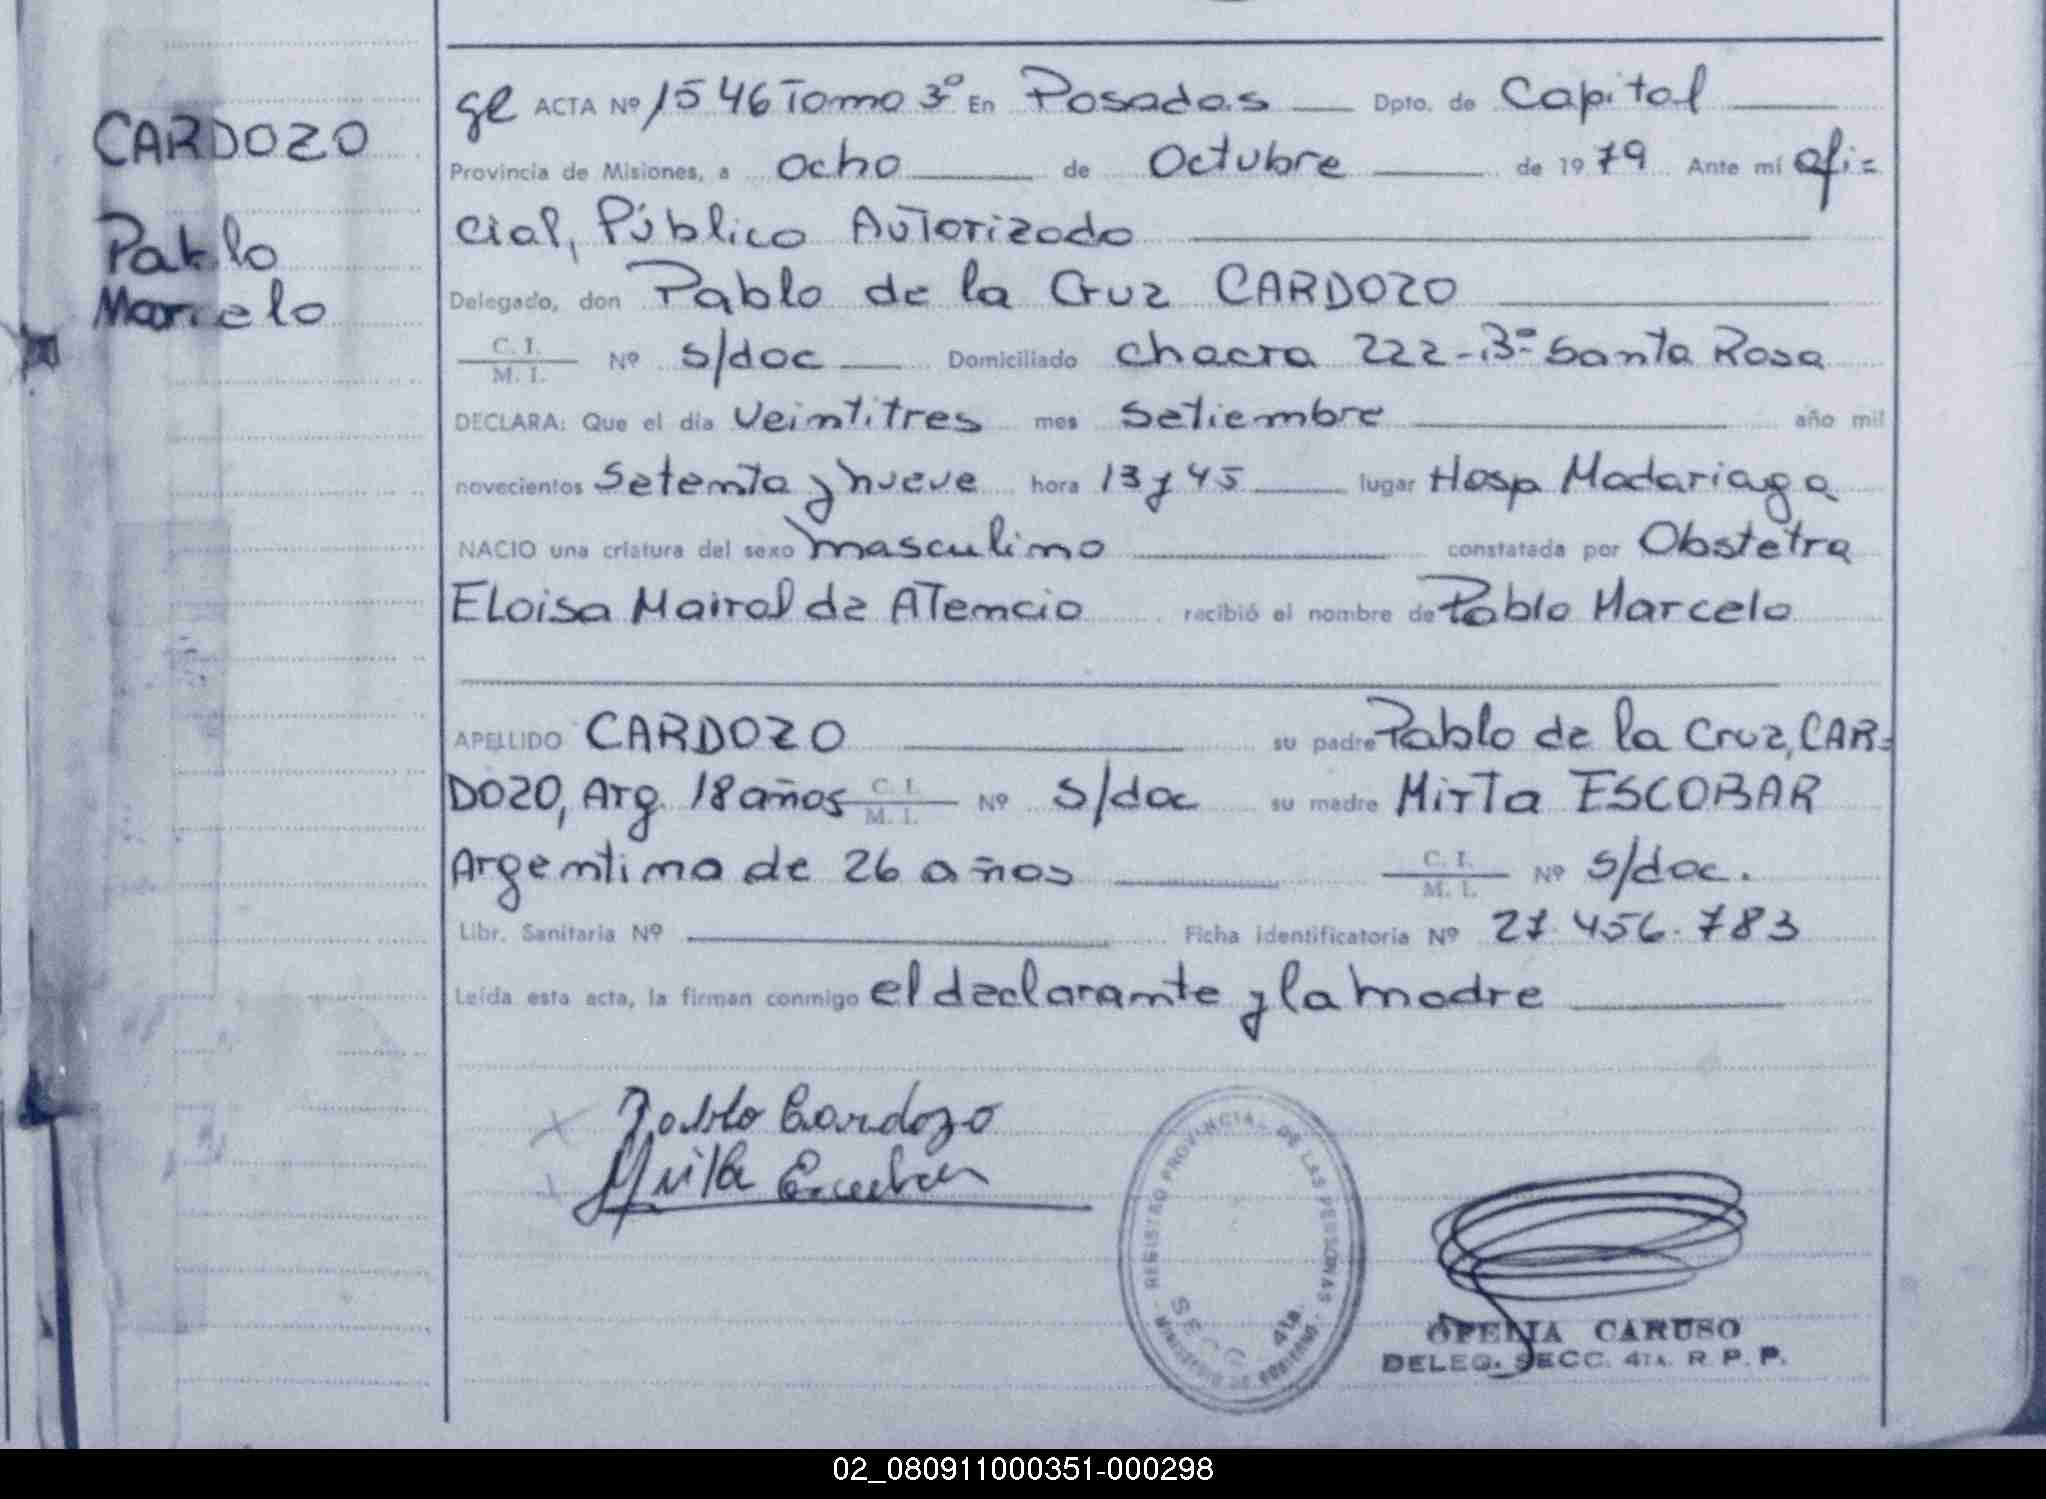 CARDOZO
Pablo
Marcelo
ge ACTA Nº 1546 Tomo 3º En Posadas Dpto. de Capital
Provincia de Misiones, a ocho de Octubre de 1979 Ante mí ofi=
cial, Público Autorizado
Delegado, don Pablo de la Cruz CARDOZO
C. I.
M. I. Nº s/doc Domiciliado chacra 222-Bº Santa Rosa
DECLARA: Que el día veintitres mes setiembre año mil
novecientos setenta y nueve hora 13 y 45 lugar Hosp Madariaga
NACIO una criatura del sexo masculino constatada por Obstetra
Eloisa Mairal de Atencio recibió el nombre de Pablo Marcelo
APELLIDO CARDOZO su padre Pablo de la Cruz, CAR=
DOZO, Arg. 18 años C. I. M. I. Nº s/doc su madre Mirta ESCOBAR
Argentina de 26 años C. I. M. I. Nº s/doc.
Libr. Sanitaria Nº Ficha identificatoria Nº 27.456.783
Leída esta acta, la firman conmigo el declarante y la madre
Pablo Cardozo
Mirta Escobar
REGISTRO PROVINCIAL DE LAS PERSONAS
MINISTERIO DE GOBIERNO
SECC. 4ta.
OFELIA CARUSO
DELEG. SECC. 4TA. R. P. P.
02_080911000351-000298